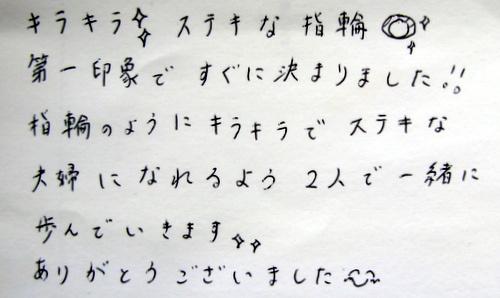 キラキラ ステキな指輪
第一印象で すぐに決まりました!!
指輪のようにキラキラで ステキな
夫婦になれるよう 2人で一緒に
歩んでいきます
ありがとうございました